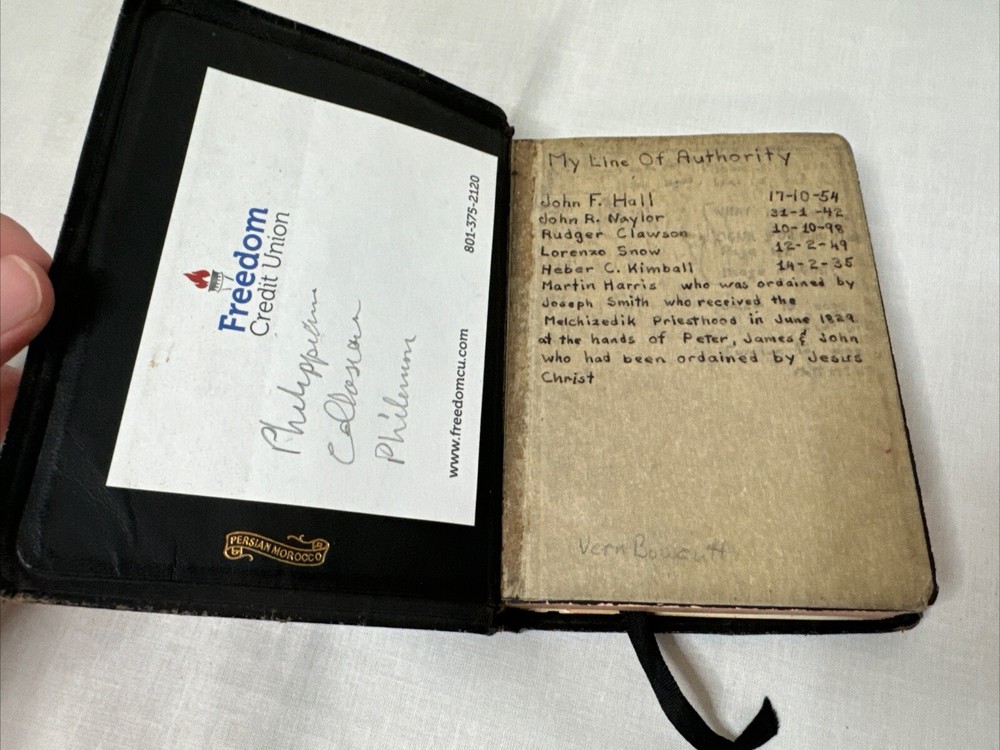 Freedom
Credit Union
801-375-2120
www.freedomcu.com
Philippians
Colossian
Philemon
PERSIAN MOROCCO
My Line Of Authority
John F. Hall 17-10-54
John R. Naylor 31-1-42
Rudger Clawson 10-10-98
Lorenzo Snow 12-2-49
Heber C. Kimball 14-2-35
Martin Harris who was ordained by
Joseph Smith who received the
Melchizedik Priesthood in June 1829
at the hands of Peter, James & John
who had been ordained by Jesus
Christ
Vern